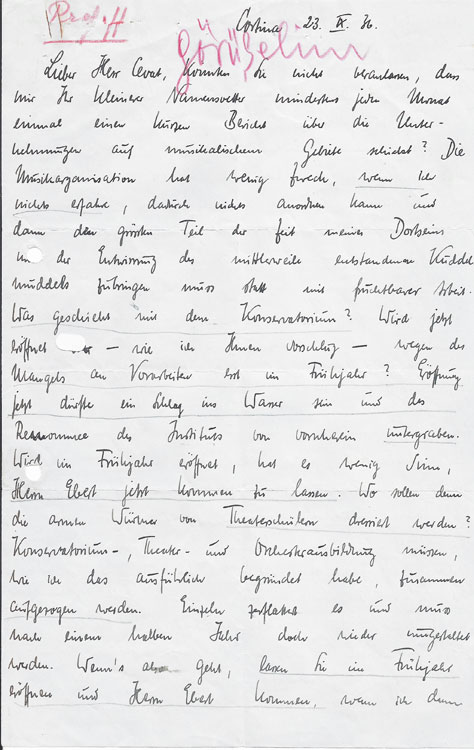 Prof. H
Cortina 23. IX. 36.
görüşelim
Lieber Herr Cevat, könnten Sie nicht veranlassen, dass
mir Ihr kleinerer Namensvetter mindestens jeden Monat
einmal einen kurzen Bericht über die Unter-
nehmungen auf musikalischem Gebiete schickt? Die
Musikorganisation hat wenig Zweck, wenn ich
nichts erfahre, dadurch nichts anordnen kann und
dann den grössten Teil der Zeit meines Dortseins
in der Entwirrung des mittlerweile entstandenen Kuddel
muddels zubringen muss statt mit fruchtbarer Arbeit.
Was geschieht mit dem Konservatorium? Wird jetzt
eröffnet — wie ich Ihnen vorschlug — wegen des
Mangels an Vorarbeiten erst im Frühjahr? Eröffnung
jetzt dürfte ein Schlag ins Wasser sein und das
Renommee des Instituts von vornherein untergraben.
Wird im Frühjahr eröffnet, hat es wenig Sinn,
Herrn Ebert jetzt kommen zu lassen. Wo sollen denn
die armen Würmer von Theaterschülern dressiert werden?
Konservatorium-, Theater- und Orchesterausbildung müssen,
wie ich das ausführlich begründet habe, zusammen
aufgezogen werden. Einzeln zerflattert es und muss
nach einem halben Jahr doch wieder umgestaltet
werden. Wenn's geht, lassen Sie im Frühjahr
eröffnen und Herrn Ebert kommen, wenn ich dann